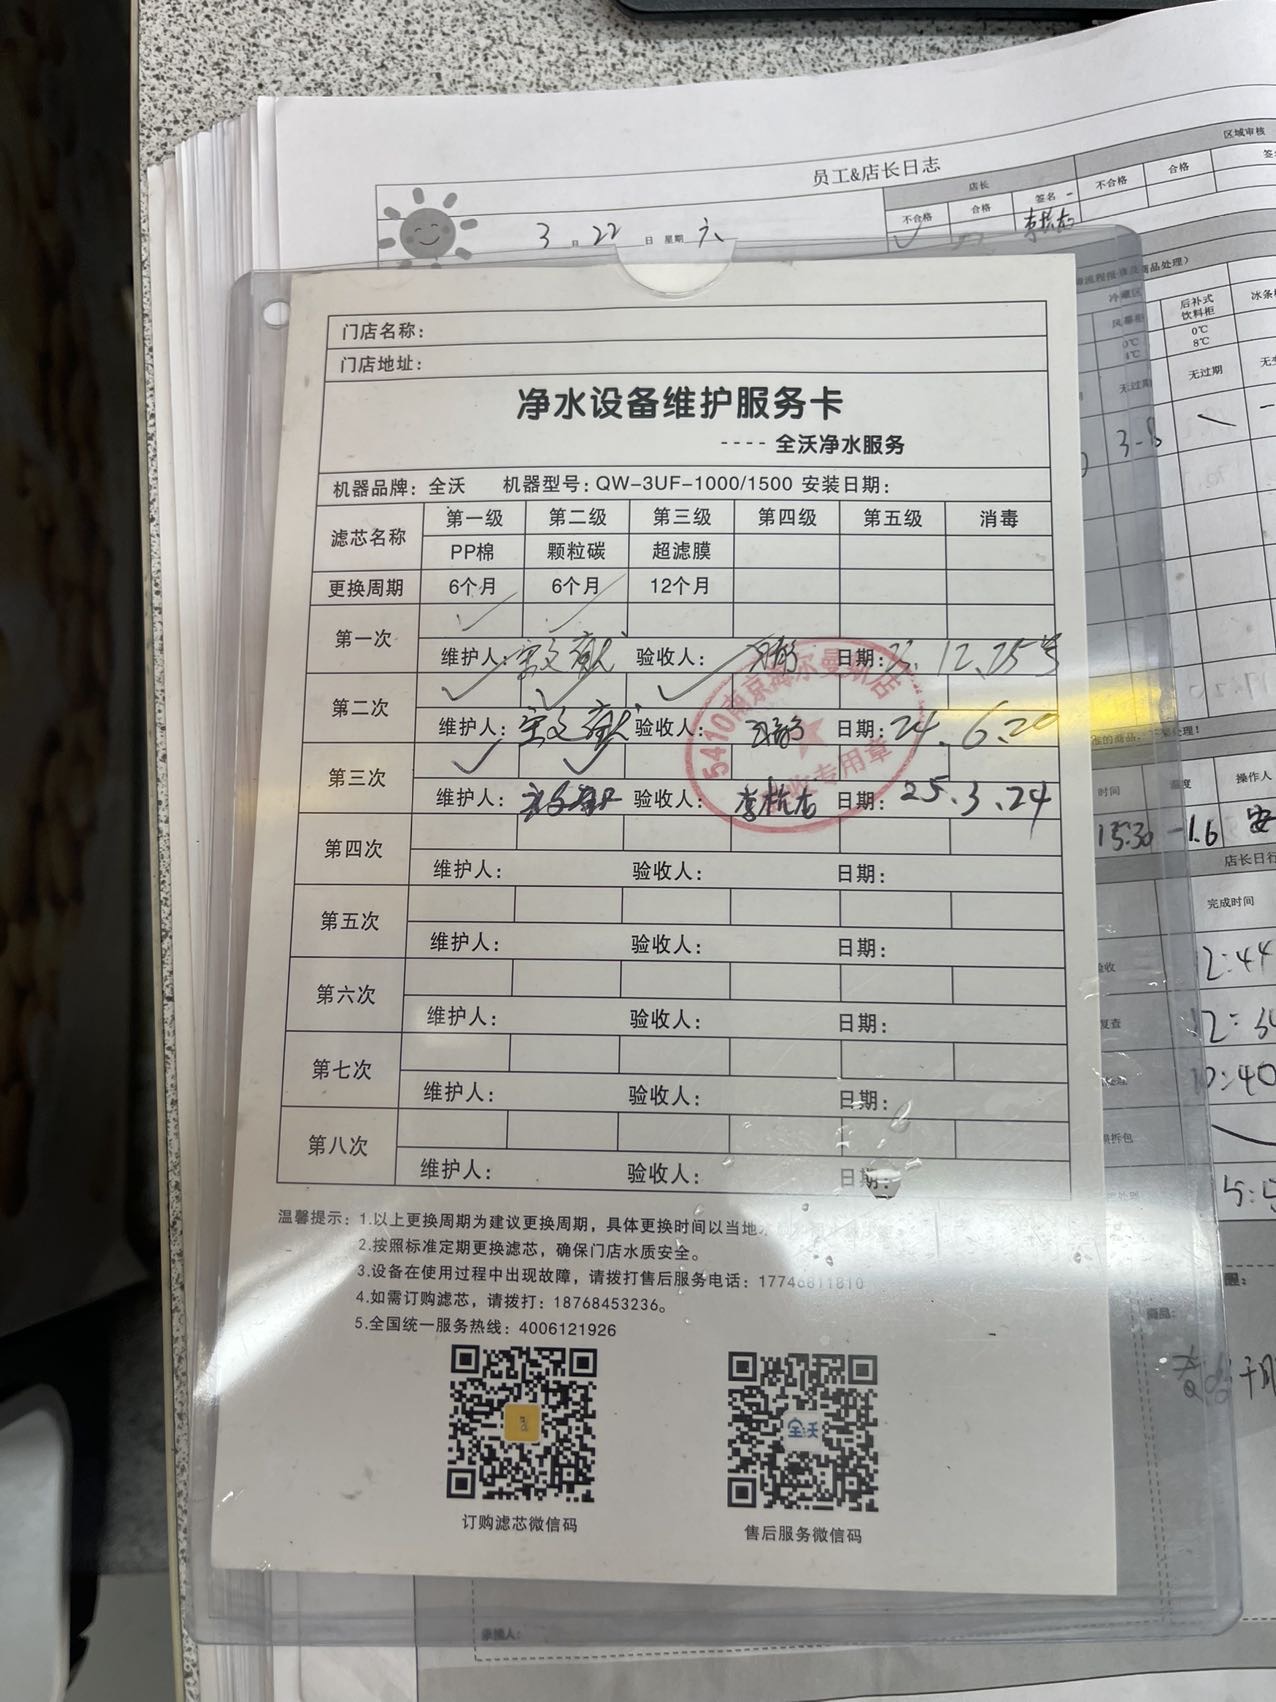 员工&店长日志
区域审核
店长
不合格
合格
签名
不合格
合格
3月22日 星期六
后补式
饮料柜
0℃
8℃
0℃
4℃
无过期
无过期
3-8
门店名称：
门店地址：
净水设备维护服务卡
---- 全沃净水服务
机器品牌：全沃 机器型号：QW-3UF-1000/1500 安装日期：
滤芯名称 第一级 第二级 第三级 第四级 第五级 消毒
PP棉 颗粒碳 超滤膜
更换周期 6个月 6个月 12个月
第一次
维护人： 验收人： 日期：23.12.25号
第二次
维护人： 验收人： 日期：24.6.20
第三次
维护人： 验收人： 日期：25.3.24
第四次
维护人： 验收人： 日期：
第五次
维护人： 验收人： 日期：
第六次
维护人： 验收人： 日期：
第七次
维护人： 验收人： 日期：
第八次
维护人： 验收人： 日期：
温馨提示：1.以上更换周期为建议更换周期，具体更换时间以当地
2.按照标准定期更换滤芯，确保门店水质安全。
3.设备在使用过程中出现故障，请拨打售后服务电话：17746811810
4.如需订购滤芯，请拨打：18768453236。
5.全国统一服务热线：4006121926
全沃
订购滤芯微信码
售后服务微信码
时间
操作人
15:30 -1.6 安
店长日行
完成时间
12:44